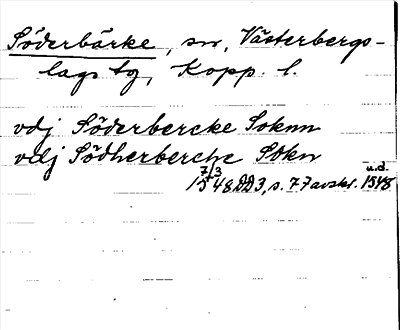 Söderbärke, sn, Västerbergs-
lags tg, Kopp. l.
vdj Söderbercke Soknn
vdj Södherberche Sokn
7/3 1548 DD3, s. 77 avskr. 1548 u.d.